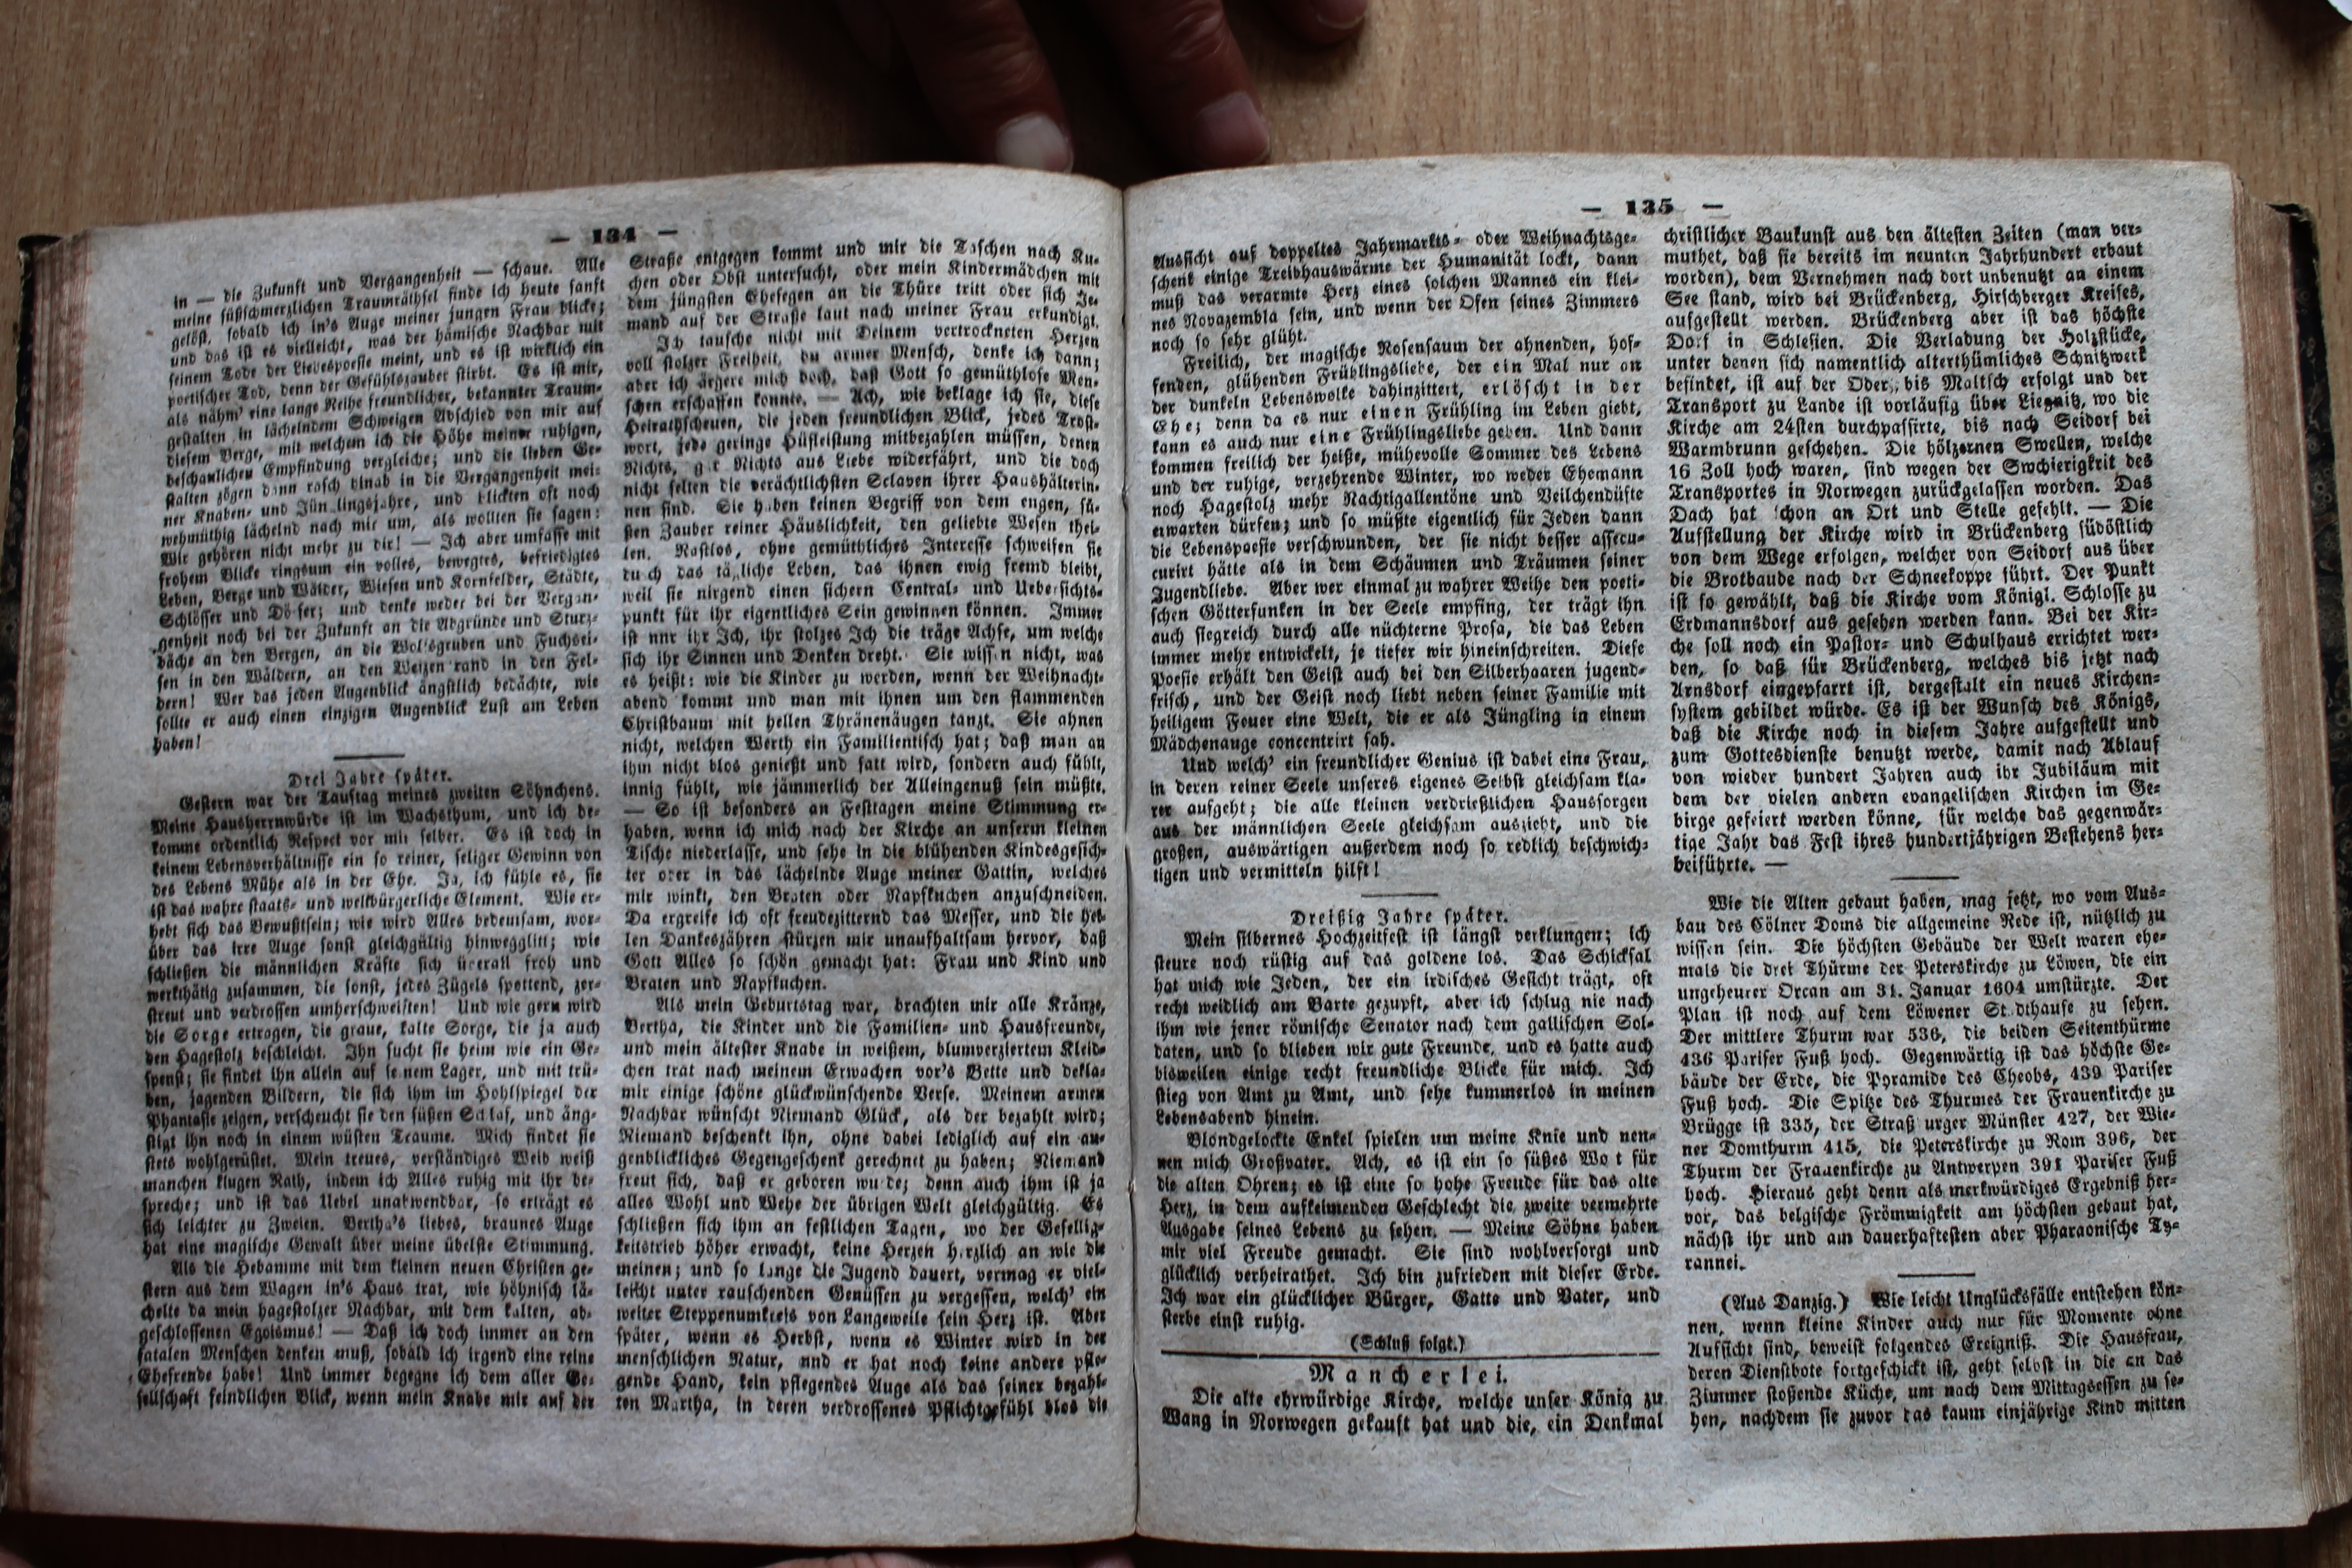 — 134 —
in — die Zukunft und Vergangenheit — schaue. Alle
meine süßschmerzlichen Traumräthsel finde ich heute sanft
gelöst, sobald ich in's Auge meiner jungen Frau blicke;
und das ist es vielleicht, was der hämische Nachbar mit
seinem Tode der Liebespoesie meint, und es ist wirklich ein
poetischer Tod, denn der Gefühlszauber stirbt. Es ist mir,
als nähm' eine lange Reihe freundlicher, bekannter Traum-
gestalten in lächelndem Schweigen Abschied von mir auf
diesem Berge, mit welchem ich die Höhe meiner ruhigen,
beschaulichen Empfindung vergleiche; und die lieben Ge-
stalten zögen dann rasch hinab in die Vergangenheit mei-
ner Knaben- und Jünglingsjahre, und blickten oft noch
wehmüthig lächelnd nach mir um, als wollten sie sagen:
Wir gehören nicht mehr zu dir! — Ich aber umfasse mit
frohem Blicke ringsum ein volles, bewegtes, befriedigtes
Leben, Berge und Wälder, Wiesen und Kornfelder, Städte,
Schlösser und Dörfer; und denke weder bei der Vergan-
genheit noch bei der Zukunft an die Abgründe und Sturz-
bäche an den Bergen, an die Wolfsgruben und Fuchsei-
sen in den Wäldern, an den Weizenbrand in den Fel-
dern! Wer das jeden Augenblick ängstlich bedächte, wie
sollte er auch einen einzigen Augenblick Lust am Leben
haben!
Drei Jahre später.
Gestern war der Tauftag meines zweiten Söhnchens.
Meine Hausherrnwürde ist im Wachsthum, und ich be-
komme ordentlich Respect vor mir selber. Es ist doch in
keinem Lebensverhältnisse ein so reiner, seliger Gewinn von
des Lebens Mühe als in der Ehe. Ja, ich fühle es, sie
ist das wahre staats- und weltbürgerliche Element. Wie er-
hebt sich das Bewußtsein; wie wird Alles bedeutsam, wor-
über das irre Auge sonst gleichgültig hinwegglitt; wie
schließen die männlichen Kräfte sich überall froh und
werkthätig zusammen, die sonst, jedes Zügels spottend, zer-
streut und verdrossen umherschweiften! Und wie gern wird
die Sorge ertragen, die graue, kalte Sorge, die ja auch
den Hagestolz beschleicht. Ihn sucht sie heim wie ein Ge-
spenst; sie findet ihn allein auf seinem Lager, und mit trü-
ben, jagenden Bildern, die sich ihm im Hohlspiegel der
Phantasie zeigen, verscheucht sie den süßen Schlaf, und äng-
stigt ihn noch in einem wüsten Traume. Mich findet sie
stets wohlgerüstet. Mein treues, verständiges Weib weiß
manchen klugen Rath, indem ich Alles ruhig mit ihr be-
spreche; und ist das Uebel unabwendbar, so erträgt es
sich leichter zu Zweien. Bertha's liebes, braunes Auge
hat eine magische Gewalt über meine übelste Stimmung.
Als die Hebamme mit dem kleinen neuen Christen ge-
stern aus dem Wagen in's Haus trat, wie höhnisch lä-
chelte da mein hagestolzer Nachbar, mit dem kalten, ab-
geschlossenen Egoismus! — Daß ich doch immer an den
fatalen Menschen denken muß, sobald ich irgend eine reine
Ehefreude habe! Und immer begegne ich dem aller Ge-
sellschaft feindlichen Blick, wenn mein Knabe mir auf der
Straße entgegen kommt und mir die Taschen nach Ku-
chen oder Obst untersucht, oder mein Kindermädchen mit
dem jüngsten Ehesegen an die Thüre tritt oder sich Je-
mand auf der Straße laut nach meiner Frau erkundigt.
Ich tausche nicht mit Deinem vertrockneten Herzen
voll stolzer Freiheit, du armer Mensch, denke ich dann;
aber ich ärgere mich doch, daß Gott so gemüthlose Men-
schen erschaffen konnte. — Ach, wie beklage ich sie, diese
Heirathscheuen, die jeden freundlichen Blick, jedes Trost-
wort, jede geringe Hülfleistung mitbezahlen müssen, denen
Nichts, gar Nichts aus Liebe widerfährt, und die doch
nicht selten die verächtlichsten Sclaven ihrer Haushälterin-
nen sind. Sie haben keinen Begriff von dem engen, sü-
ßen Zauber reiner Häuslichkeit, den geliebte Wesen thei-
len. Rastlos, ohne gemüthliches Interesse schweifen sie
durch das tägliche Leben, das ihnen ewig fremd bleibt,
weil sie nirgend einen sichern Central- und Uebersichts-
punkt für ihr eigentliches Sein gewinnen können. Immer
ist nur ihr Ich, ihr stolzes Ich die träge Achse, um welche
sich ihr Sinnen und Denken dreht. Sie wissen nicht, was
es heißt: wie die Kinder zu werden, wenn der Weihnacht-
abend kommt und man mit ihnen um den flammenden
Christbaum mit hellen Thränenäugen tanzt. Sie ahnen
nicht, welchen Werth ein Familientisch hat; daß man an
ihm nicht blos genießt und satt wird, sondern auch fühlt,
innig fühlt, wie jämmerlich der Alleingenuß sein müßte.
— So ist besonders an Festtagen meine Stimmung er-
haben, wenn ich mich nach der Kirche an unserm kleinen
Tische niederlasse, und sehe in die blühenden Kindesgesich-
ter oder in das lächelnde Auge meiner Gattin, welches
mir winkt, den Braten oder Napfkuchen anzuschneiden.
Da ergreife ich oft freudezitternd das Messer, und die hel-
len Dankeszähren stürzen mir unaufhaltsam hervor, daß
Gott Alles so schön gemacht hat: Frau und Kind und
Braten und Napfkuchen.
Als mein Geburtstag war, brachten mir alle Kränze,
Bertha, die Kinder und die Familien- und Hausfreunde,
und mein ältester Knabe in weißem, blumverziertem Kleid-
chen trat nach meinem Erwachen vor's Bette und dekla-
mir einige schöne glückwünschende Verse. Meinem armen
Nachbar wünscht Niemand Glück, als der bezahlt wird;
Niemand beschenkt ihn, ohne dabei lediglich auf ein au-
genblickliches Gegengeschenk gerechnet zu haben; Niemand
freut sich, daß er geboren wurde; denn auch ihm ist ja
alles Wohl und Wehe der übrigen Welt gleichgültig. Es
schließen sich ihm an festlichen Tagen, wo der Gesellig-
keitstrieb höher erwacht, keine Herzen herzlich an wie die
meinen; und so lange die Jugend dauert, vermag er viel-
leicht unter rauschenden Genüssen zu vergessen, welch' ein
weiter Steppenumkreis von Langeweile sein Herz ist. Aber
später, wenn es Herbst, wenn es Winter wird in der
menschlichen Natur, und er hat noch keine andere pfle-
gende Hand, kein pflegendes Auge als das seiner bezahl-
ten Martha, in deren verdrossenes Pflichtgefühl blos die
— 135 —
Aussicht auf doppeltes Jahrmarkts- oder Weihnachtsge-
schenk einige Treibhauswärme der Humanität lockt, dann
muß das verarmte Herz eines solchen Mannes ein klei-
nes Novazembla sein, und wenn der Ofen seines Zimmers
noch so sehr glüht.
Freilich, der magische Rosensaum der ahnenden, hof-
fenden, glühenden Frühlingsliebe, der ein Mal nur an
der dunkeln Lebenswolke dahinzittert, erlöscht in der
Ehe; denn da es nur einen Frühling im Leben giebt,
kann es auch nur eine Frühlingsliebe geben. Und dann
kommen freilich der heiße, mühevolle Sommer des Lebens
und der ruhige, verzehrende Winter, wo weder Ehemann
noch Hagestolz mehr Nachtigallentöne und Veilchendüfte
erwarten dürfen; und so müßte eigentlich für Jeden dann
die Lebenspoesie verschwunden, der sie nicht besser assecu-
curirt hätte als in dem Schäumen und Träumen seiner
Jugendliebe. Aber wer einmal zu wahrer Weihe den poeti-
schen Götterfunken in der Seele empfing, der trägt ihn
auch siegreich durch alle nüchterne Prosa, die das Leben
immer mehr entwickelt, je tiefer wir hineinschreiten. Diese
Poesie erhält den Geist auch bei den Silberhaaren jugend-
frisch, und der Geist noch liebt neben seiner Familie mit
heiligem Feuer eine Welt, die er als Jüngling in einem
Mädchenauge concentrirt sah.
Und welch' ein freundlicher Genius ist dabei eine Frau,
in deren reiner Seele unseres eigenes Selbst gleichsam kla-
rer aufgeht; die alle kleinen verdrießlichen Haussorgen
aus der männlichen Seele gleichsam auszieht, und die
großen, auswärtigen außerdem noch so redlich beschwich-
tigen und vermitteln hilft!
Dreißig Jahre später.
Mein silbernes Hochzeitfest ist längst verklungen; ich
steure noch rüstig auf das goldene los. Das Schicksal
hat mich wie Jeden, der ein irdisches Gesicht trägt, oft
recht weidlich am Barte gezupft, aber ich schlug nie nach
ihm wie jener römische Senator nach dem gallischen Sol-
daten, und so blieben wir gute Freunde, und es hatte auch
bisweilen einige recht freundliche Blicke für mich. Ich
stieg von Amt zu Amt, und sehe kummerlos in meinen
Lebensabend hinein.
Blondgelockte Enkel spielen um meine Knie und nen-
nen mich Großvater. Ach, es ist ein so süßes Wo t für
die alten Ohren; es ist eine so hohe Freude für das alte
Herz, in dem aufkeimenden Geschlecht die zweite vermehrte
Ausgabe seines Lebens zu sehen. — Meine Söhne haben
mir viel Freude gemacht. Sie sind wohlversorgt und
glücklich verheirathet. Ich bin zufrieden mit dieser Erde.
Ich war ein glücklicher Bürger, Gatte und Vater, und
sterbe einst ruhig.
(Schluß folgt.)
Mancherlei.
Die alte ehrwürdige Kirche, welche unser König zu
Wang in Norwegen gekauft hat und die, ein Denkmal
christlicher Baukunst aus den ältesten Zeiten (man ver-
muthet, daß sie bereits im neunten Jahrhundert erbaut
worden), dem Vernehmen nach dort unbenutzt an einem
See stand, wird bei Brückenberg, Hirschberger Kreises,
aufgestellt werden. Brückenberg aber ist das höchste
Dorf in Schlesien. Die Verladung der Holzstücke,
unter denen sich namentlich alterthümliches Schnitzwerk
befindet, ist auf der Oder, bis Maltsch erfolgt und der
Transport zu Lande ist vorläufig über Liegnitz, wo die
Kirche am 24sten durchpassirte, bis nach Seidorf bei
Warmbrunn geschehen. Die hölzernen Swellen, welche
16 Zoll hoch waren, sind wegen der Swchierigkeit des
Transportes in Norwegen zurückgelassen worden. Das
Dach hat schon an Ort und Stelle gefehlt. — Die
Aufstellung der Kirche wird in Brückenberg südöstlich
von dem Wege erfolgen, welcher von Seidorf aus über
die Brotbaude nach der Schneekoppe führt. Der Punkt
ist so gewählt, daß die Kirche vom Königl. Schlosse zu
Erdmannsdorf aus gesehen werden kann. Bei der Kir-
che soll noch ein Pastor- und Schulhaus errichtet wer-
den, so daß für Brückenberg, welches bis jetzt nach
Arnsdorf eingepfarrt ist, dergestalt ein neues Kirchen-
system gebildet würde. Es ist der Wunsch des Königs,
daß die Kirche noch in diesem Jahre aufgestellt und
zum Gottesdienste benutzt werde, damit nach Ablauf
von wieder hundert Jahren auch ihr Jubiläum mit
dem der vielen andern evangelischen Kirchen im Ge-
birge gefeiert werden könne, für welche das gegenwär-
tige Jahr das Fest ihres hundertjährigen Bestehens her-
beiführte. —
Wie die Alten gebaut haben, mag jetzt, wo vom Aus-
bau des Cölner Doms die allgemeine Rede ist, nützlich zu
wissen sein. Die höchsten Gebäude der Welt waren ehe-
mals die drei Thürme der Peterskirche zu Löwen, die ein
ungeheurer Orcan am 31. Januar 1604 umstürzte. Der
Plan ist noch auf dem Löwener St dthause zu sehen.
Der mittlere Thurm war 536, die beiden Seitenthürme
436 Pariser Fuß hoch. Gegenwärtig ist das höchste Ge-
bäude der Erde, die Pyramide des Cheobs, 439 Pariser
Fuß hoch. Die Spitze des Thurmes der Frauenkirche zu
Brügge ist 335, der Straß urger Münster 427, der Wie-
ner Domthurm 415, die Peterskirche zu Rom 396, der
Thurm der Frauenkirche zu Antwerpen 391 Pariser Fuß
hoch. Hieraus geht denn als merkwürdiges Ergebniß her-
vor, das belgische Frömmigkeit am höchsten gebaut hat,
nächst ihr und am dauerhaftesten aber Pharaonische Ty-
rannei.
(Aus Danzig.) Wie leicht Unglücksfälle entstehen kön-
nen, wenn kleine Kinder auch nur für Momente ohne
Aufsicht sind, beweist folgendes Ereigniß. Die Hausfrau,
deren Dienstbote fortgeschickt ist, geht selbst in die an das
Zimmer stoßende Küche, um nach dem Mittagsessen zu se-
hen, nachdem sie zuvor das kaum einjährige Kind mitten